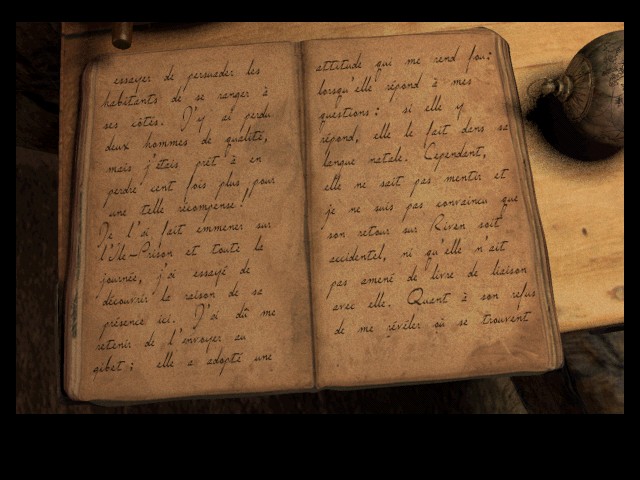 essayer de persuader les
habitants de se ranger à
ses côtés. J'y ai perdu
deux hommes de qualité,
mais j'étais prêt à en
perdre cent fois plus pour
une telle récompense !
Je l'ai fait emmener sur
l'île-Prison et toute la
journée, j'ai essayé de
découvrir la raison de sa
présence ici. J'ai dû me
retenir de l'envoyer au
gibet ; elle a adopté une
attitude qui me rend fou ;
lorsqu'elle répond à mes
questions ; si elle y
répond, elle le fait dans sa
langue natale. Cependant,
elle ne sait pas mentir et
je ne suis pas convaincu que
son retour sur Riven soit
accidentel, ni qu'elle n'ait
pas amené de livre de liaison
avec elle. Quant à son refus
de me révéler où se trouvent